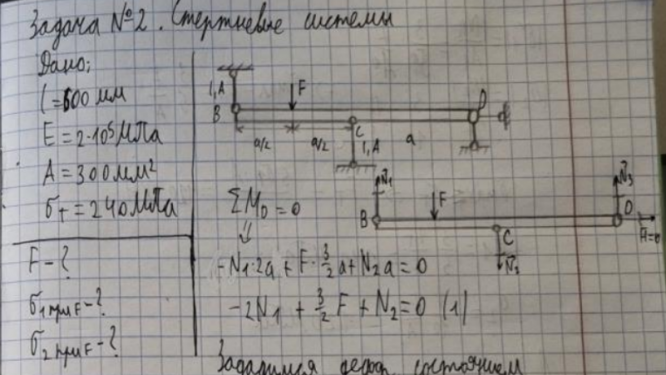 Задача №2. Стержневые системы
Дано:
l=600 мм
E=2·10⁵ МПа
A=300 мм²
σт=240 МПа
F-?
σ1 при F-?
σ2 при F-?
l,A
F
B
C
D
a/2
a/2
a
l,A
N⃗1
F
N⃗3
B
C
D
H=0
N⃗2
ΣM_D=0
⇓
-N1·2a+F·3/2a+N2a=0
-2N1+3/2F+N2=0 (1)
Зададимся дефор. состоянием